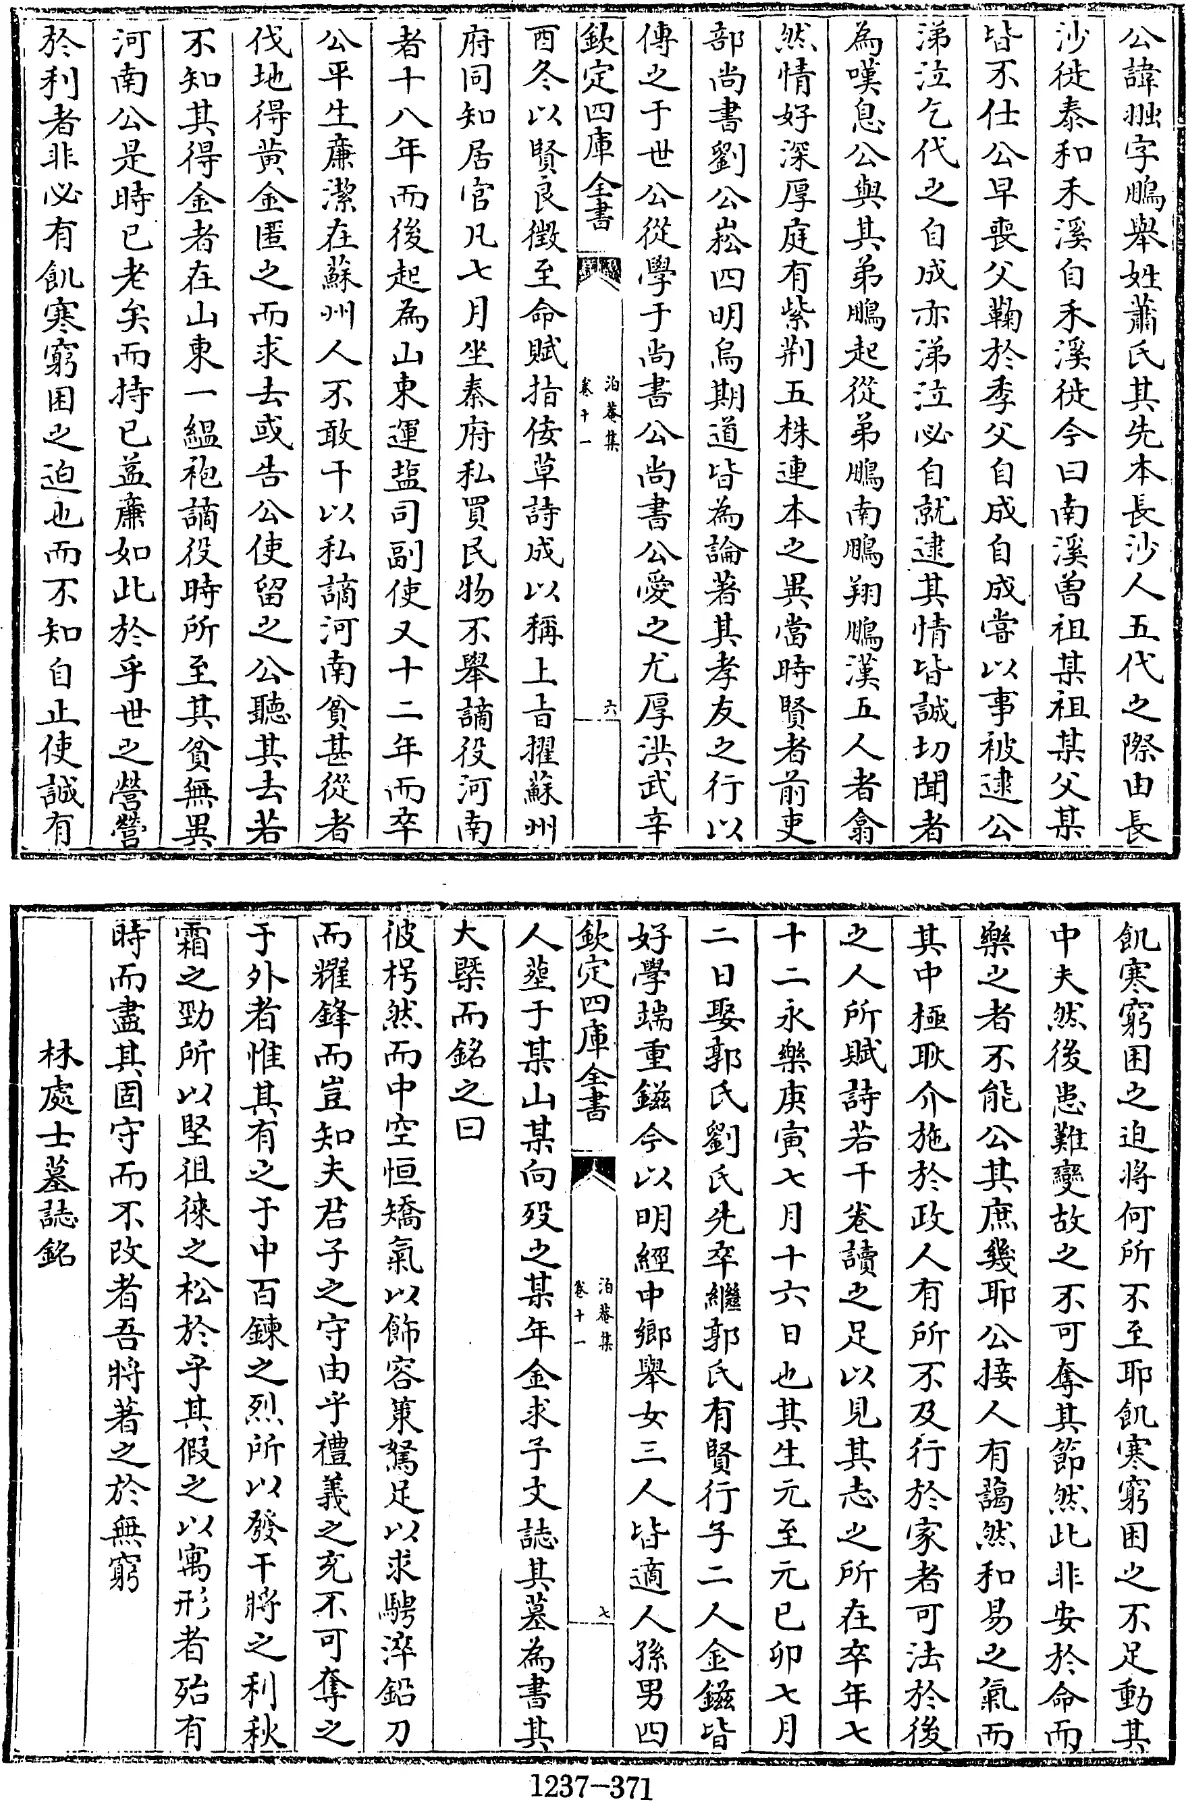 公諱翀字鵬舉姓蕭氏其先本長沙人五代之際由長
沙徙泰和禾溪自禾溪徙今曰南溪曾祖某祖某父某
皆不仕公早喪父鞠於季父自成自成嘗以事被逮公
涕泣乞代之自成亦涕泣必自就逮其情皆誠切聞者
為嘆息公與其弟鵬起從弟鵬南鵬翔鵬漢五人者翕
然情好深厚庭有紫荆五株連本之異當時賢者前吏
部尚書劉公崧四明烏期道皆為論著其孝友之行以
傳之于世公從學于尚書公尚書公愛之尤厚洪武辛
欽定四庫全書
泊菴集
卷十一
六
酉冬以賢良徵至命賦指佞草詩成以稱上旨擢蘇州
府同知居官凡七月坐秦府私買民物不舉謫役河南
者十八年而後起為山東運鹽司副使又十二年而卒
公平生廉潔在蘇州人不敢干以私謫河南貧甚從者
伐地得黄金匿之而求去或告公使留之公聽其去若
不知其得金者在山東一緼袍謫役時所至其貧無異
河南公是時已老矣而持已益廉如此於乎世之營營
於利者非必有飢寒窮困之迫也而不知自止使誠有
飢寒窮困之迫將何所不至耶飢寒窮困之不足動其
中夫然後患難變故之不可奪其節然此非安於命而
樂之者不能公其庶幾耶公接人有藹然和易之氣而
其中極耿介施於政人有所不及行於家者可法於後
之人所賦詩若干卷讀之足以見其志之所在卒年七
十二永樂庚寅七月十六日也其生元至元己卯七月
二日娶郭氏劉氏先卒繼郭氏有賢行子二人金鎡皆
好學端重鎡今以明經中鄉舉女三人皆適人孫男四
欽定四庫全書
泊菴集
卷十一
七
人塟于某山某向歿之某年金求予文誌其墓為書其
大槩而銘之曰
彼枵然而中空恒矯氣以飾容策駑足以求騁淬鉛刀
而耀鋒而豈知夫君子之守由乎禮義之充不可奪之
于外者惟其有之于中百鍊之烈所以發干將之利秋
霜之勁所以堅徂徠之松於乎其假之以寓形者殆有
時而盡其固守而不改者吾將著之於無窮
林處士墓誌銘
1237-371